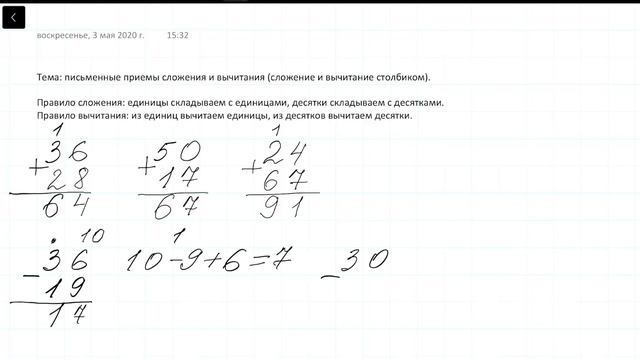 воскресенье, 3 мая 2020 г. 15:32
Тема: письменные приемы сложения и вычитания (сложение и вычитание столбиком).
Правило сложения: единицы складываем с единицами, десятки складываем с десятками.
Правило вычитания: из единиц вычитаем единицы, из десятков вычитаем десятки.
1 1
+36 +50 +24
28 17 67
64 67 91
. 10 1
-36 10-9+6=7 -30
19
17